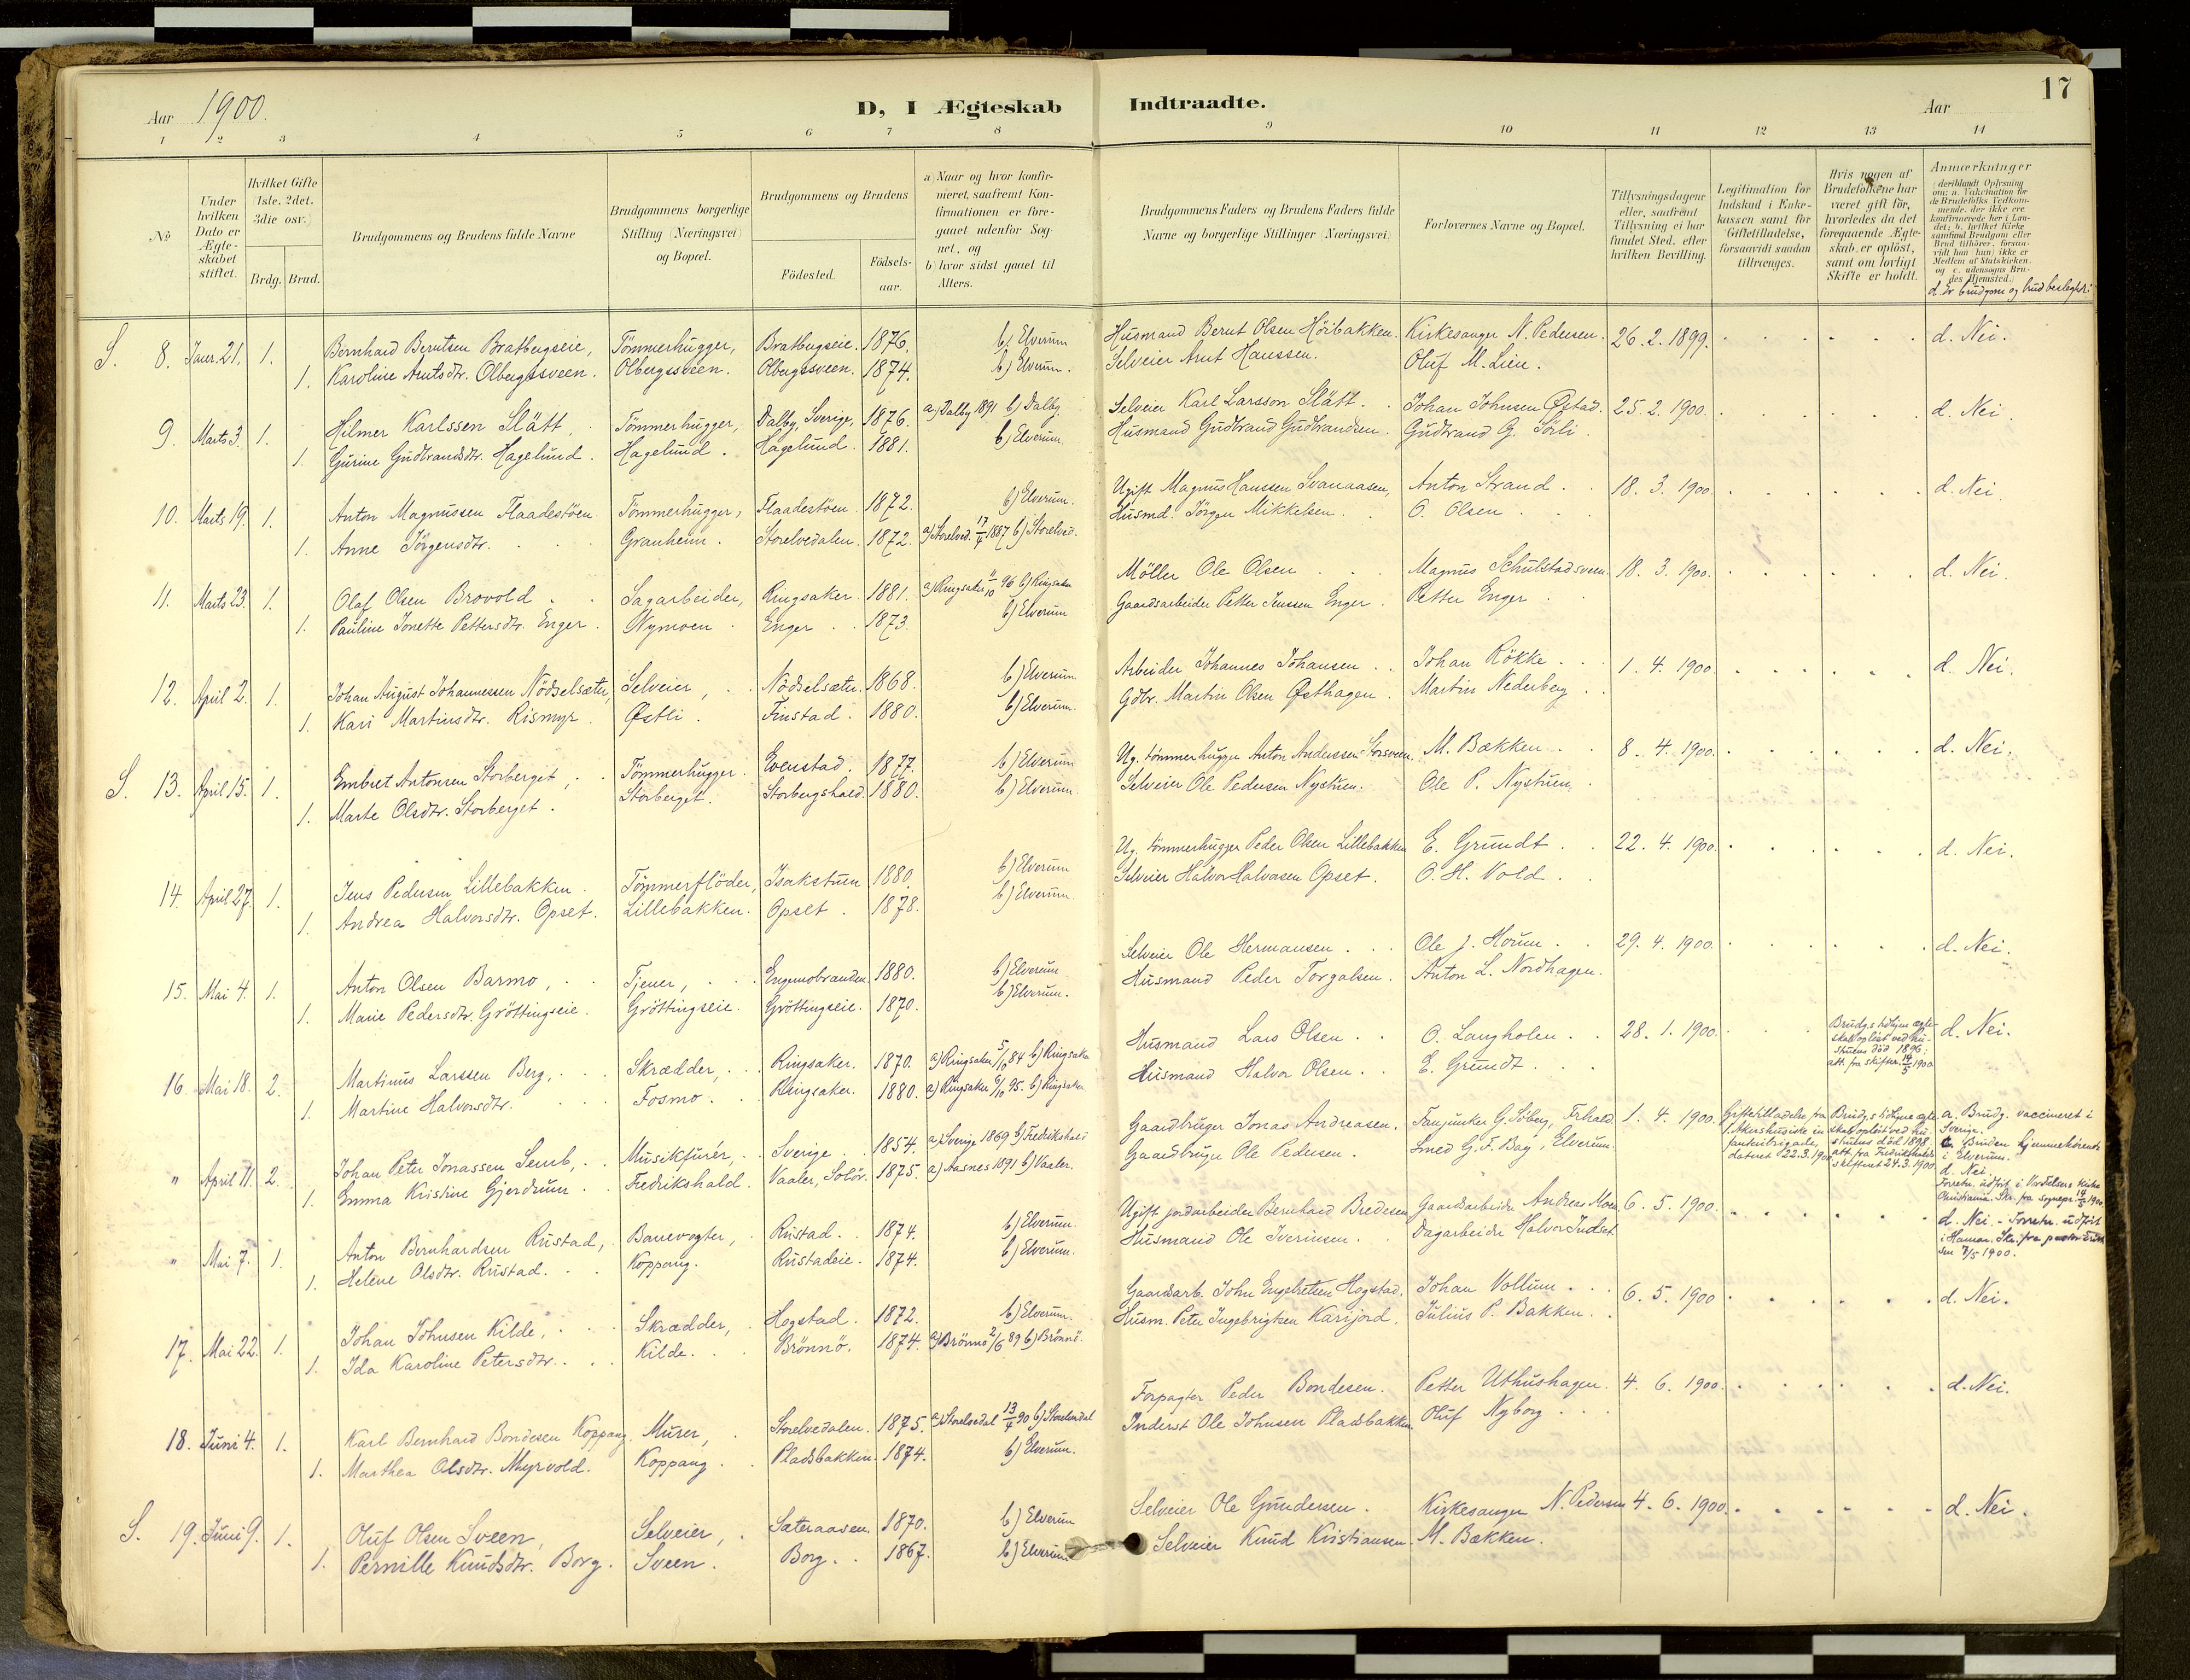 17
Aar 1900.
D, I Ægteskab Indtraadte.
Aar
1 2 3 4 5 6 7 8 9 10 11 12 13 14
No
Under hvilken Dato er Ægteskabet stiftet.
Hvilket Gifte (1ste, 2det, 3die osv.)
Brdg. Brud.
Brudgommens og Brudens fulde Navne
Brudgommens borgerlige Stilling (Næringsvei) og Bopæl.
Brudgommens og Brudens
Födested.
Födselsaar.
a) Naar og hvor konfirmeret, saafremt Konfirmationen er foregaaet udenfor Sognet, og
b) hvor sidst gaaet til Alters.
Brudgommens Faders og Brudens Faders fulde Navne og borgerlige Stillinger (Næringsvei)
Forlovernes Navne og Bopæl.
Tillysningsdagene eller, saafremt Tillysning ei har fundet Sted, efter hvilken Bevilling.
Legitimation for Indskud i Enkekassen samt for Giftetilladelse, forsaavidt saadan tiltrænges.
Hvis nogen af Brudefolkene har været gift för, hvorledes da det foregaaende Ægteskab er oplöst, samt om lovligt Skifte er holdt.
Anmærkninger (deriblandt Oplysning om: a. Vakcination for de Brudefolks Vedkommende, der ikke ere konfirmerede her i Landet; b. hvilket Kirkesamfund Brudgom eller Brud tilhörer, forsaavidt han (hun) ikke er Medlem af Statskirken, og c. udensogns Brudes Hjemsted.)
d. Er brudgom og brud beslegtet:
S. 8. Januar 21. 1. Bernhard Berntsen Bratbergseie, Tömmerhugger, Bratbergseie. 1876. b) Elverum Husmand Bernt Olsen Höibakken. Kirkesanger N. Pedersen. 26.2.1899. d. Nei.
1. Karoline Arntsdtr. Olbergssveen. Olbergssveen. Olbergssveen. 1874. b) Elverum. Selveier Arnt Hanssen. Oluf M. Lien.
9. Marts 3. 1. Hilmer Karlssen Slätt, Tömmerhugger, Dalby, Sverige, 1876. a) Dalby 1891 b) Dalby Selveier Karl Larsson Slätt. Johan Johnsen Østad. 25.2.1900. d. Nei
1. Gurine Gudbrandsdtr. Hagelund. Hagelund. Hagelund. 1881. b) Elverum. Husmand Gudbrand Gudbrandsen. Gudbrand G. Sörli.
10. Marts 19. 1. Anton Magnussen Flaadestöen Tömmerhugger, Flaadestöen 1872. b) Elverum. Ugift Magnus Hanssen Svanaasen, Anton Strand. 18.3.1900. d. Nei
1. Anne Jörgensdtr. Granheim. Storelvedalen. 1872. a) Storelved. 17/4 1887 b) Storelved. Husmd. Jörgen Mikkelsen. O. Olsen
11. Marts 23. 1. Olaf Olsen Brovold. Sagarbeider, Ringsaker. 1881. a) Ringsaker 11/10 96 b) Ringsaker Möller Ole Olsen Magnus Schulstadsveen. 18.3.1900. d. Nei.
1. Pauline Jonette Pettersdtr. Enger. Nymoen. Enger. 1873. b) Elverum Gaardsarbeider Petter Jenssen Enger. Petter Enger
12. April 2. 1. Johan August Johannessen Nödselsæter, Selveier, Nödselsæter. 1868. b) Elverum Arbeider Johannes Johansen. Johan Rökke. 1.4.1900. d. Nei.
1. Kari Martinsdtr. Rismyr. Østli. Finstad. 1880. b) Elverum. Gdbr. Martin Olsen Østhagen. Martin Nederberg
S. 13. April 15. 1. Embret Antonsen Storberget, Tömmerhugger. Evenstad. 1877. b) Elverum Ug. tömmerhugger Anton Anderssen M. Bækken. 8.4.1900. d. Nei.
1. Marte Olsdtr. Storberget. Storberget. Storbergshold. 1880. b) Elverum. Selveier Ole Pedersen Nystuen. Ole P. Nystuen.
14. April 27. 1. Jens Pedersen Lillebakken. Tömmerflöder, Isakstuen 1880. b) Elverum Ug. tömmerhugger Peder Olsen Lillebakken E. Grundt. 22.4.1900. d. Nei.
1. Andrea Halvorsdtr. Opset. Lillebakken. Opset. 1878. b) Elverum. Selveier Halvor Halvorsen Opset. O. H. Vold.
15. Mai 4. 1. Anton Olsen Barmo, Tjener, Engemobranden. 1880. b) Elverum Selveier Ole Hermansen. Ole J. Horum. 29.4.1900. d. Nei.
1. Marie Pedersdtr. Gröttingseie. Gröttingseie. Gröttingseie. 1870. b) Elverum. Husmand Peder Torgalsen. Anton L. Nordhagen.
16. Mai 18. 2. Martinus Larssen Berg, Skrædder, Ringsaker. 1870. a) Ringsaker 5/10 84 b) Ringsaker Husmand Lars Olsen. O. Langholen. 28.1.1900. Brudg.s tidligere ægteskab oplöst ved hustruens död 1896; att. fra skifter. 14/5 1900 d. Nei.
1. Martine Halvorsdtr. Fosmo. Ringsaker. 1880. a) Ringsaker 6/10 95. b) Ringsaker Husmand Halvor Olsen. E. Grundt.
" April 11. 2. Johan Peter Jonassen Semb, Musikfurér, Sverige. 1854. a) Sverige 1869 b) Fredrikshald Gaardbruger Jonas Andreasen. Fanjunker G. Söberg, Frhald. 1.4.1900. Giftetilladelse fra 1. Akershusiske infanteribrigade, datert 22.3.1900 Brudg.s tidligere ægteskab oplöst ved hustruens död 1898. att. fra Fredrikshalds skifteret 24.3.1900 a. Brudg. vaccineret i Sverige. c. Bruden hjemmehörende i Elverum. d. Nei. Forretn. udfört i Vor Frelsers kirke Christiania. Skr. fra sognepr. 14/5 1900
1. Emma Kristine Gjerdrum. Fredrikshald. Vaaler, Solör. 1875. a) Aasnes 1891 b) Vaaler. Gaardbruger Ole Pedersen. Smed G. F. Bay, Elverum.
" Mai 7. 1. Anton Bernhardsen Rustad, Banevogter, Rustad. 1874. b) Elverum. Ugift jordarbeider Bernhard Bredesen Gaardarbeider Andreas Moen 6.5.1900. d. Nei. - Forretn. udfört i Hamar. Skr. fra pastor 7/5 1900.
1. Helene Olsdtr. Rustad. Koppang. Rustadeie. 1874. b) Elverum. Husmand Ole Iversen. Dagarbeider Halvor Indset
17. Mai 22. 1. Johan Johnsen Kilde, Skrædder, Hogstad. 1872. b) Elverum. Gaardsarb. John Engebretsen Hogstad. Johan Vollum. 6.5.1900 d. Nei.
1. Ida Karoline Petersdtr. Kilde. Brönnö. 1874. a) Brönnö 2/6 89 b) Brönnö. Husm. Peter Ingebrigtsen Karijord. Julius P. Bakken.
18. Juni 4. 1. Karl Bernhard Bondesen Koppang. Murer, Storelvedalen. 1875. a) Storelvedal 13/4 90 b) Storelvedal Forpagter Peder Bondesen. Petter Uthushagen. 4.6.1900. d. Nei.
1. Marthea Olsdtr. Myrvold. Koppang. Pladsbakken. 1874. b) Elverum. Inderst Ole Johnsen Pladsbakken Oluf Nyborg
S. 19. Juni 9. 1. Oluf Olsen Sveen, Selveier, Sæteraasen 1870. b) Elverum Selveier Ole Gundersen. Kirkesanger N. Pedersen 4.6.1900. d. Nei.
1. Pernille Knudsdtr. Borg. Sveen. Borg. 1867. b) Elverum Selveier Knud Kristiansen. M. Bækken.